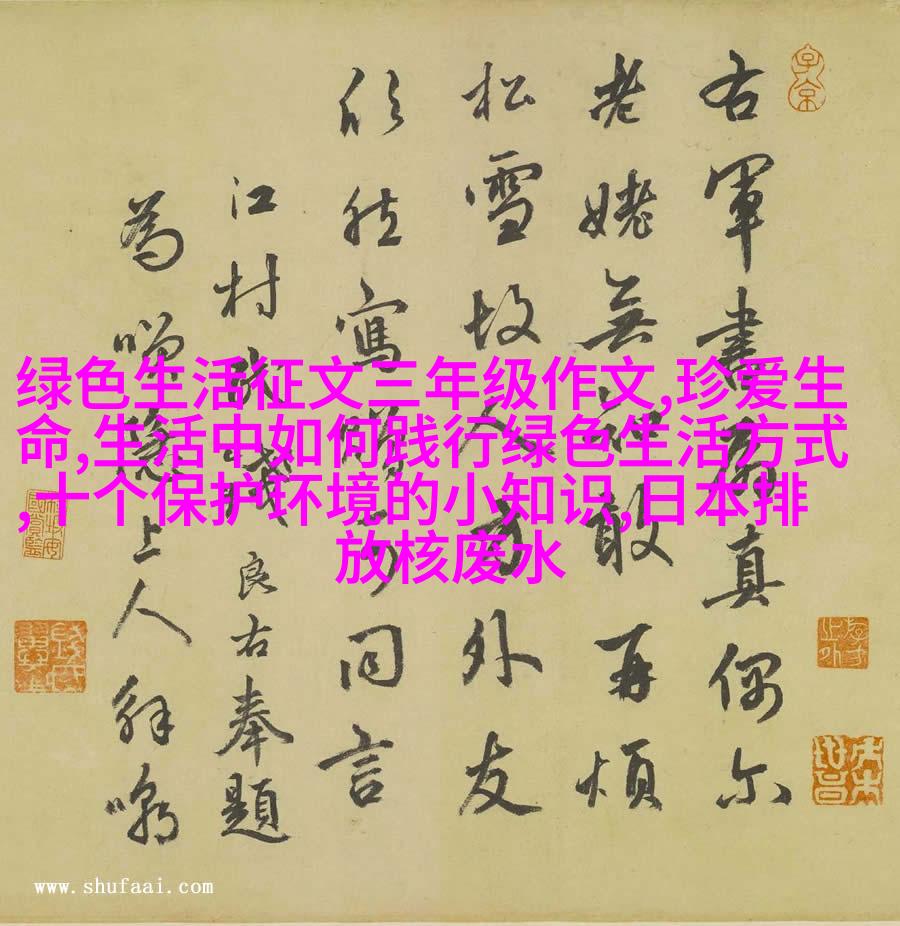 绿色生活征文三年级作文,珍爱生
命,生活中如何践行绿色生活方式
,十个保护环境的小知识,日本排
放核废水
右軍書扇真偶尔
老姥無敢再煩
松雪故人方外友
欣然寫贈可同言
江村民錢良右奉題
為上人解嘲
www.shufaai.com